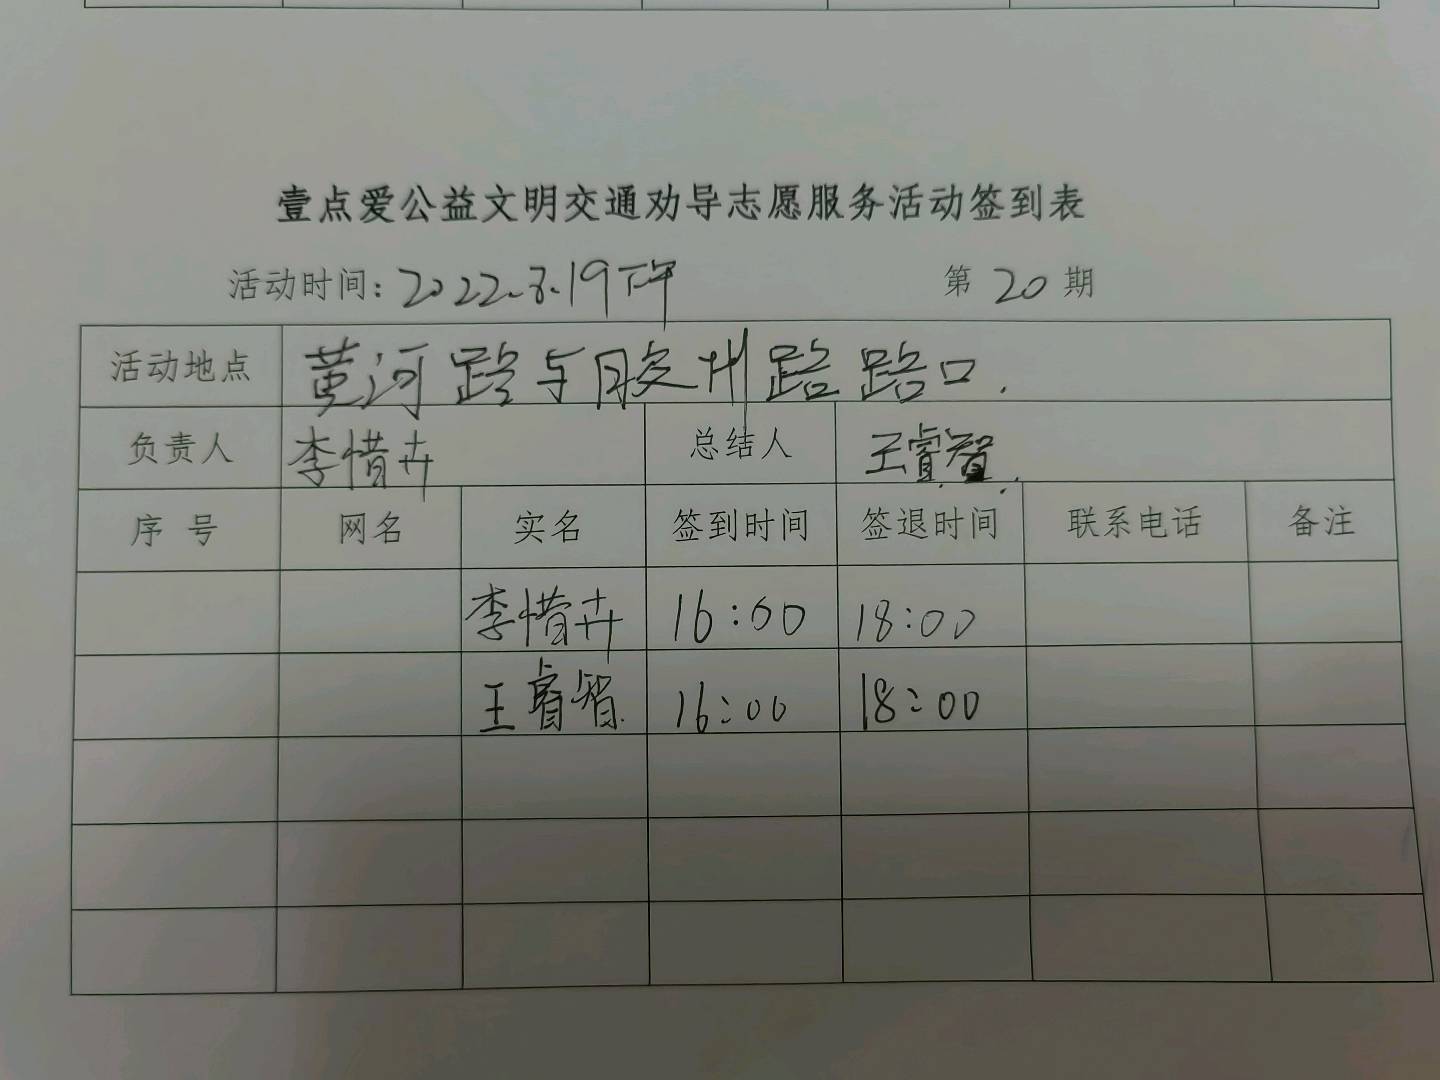 壹点爱公益文明交通劝导志愿服务活动签到表
活动时间：2022.8.19下午 第 20 期
活动地点 黄河路与胶州路路口.
负责人 李惜卉 总结人 王睿智.
序号 网名 实名 签到时间 签退时间 联系电话 备注
李惜卉 16:00 18:00
王睿智. 16:00 18:00